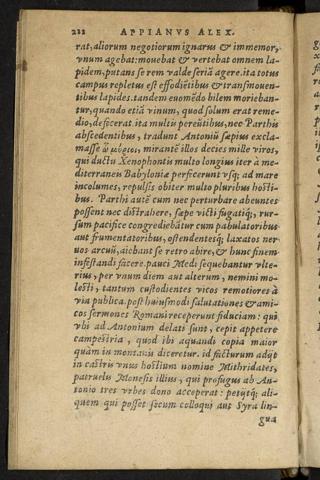 222 APPIANVS ALEX.
rat, aliorum negotiorum ignarus & immemor,
vnum agebat: mouebat & vertebat omnem la-
pidem, putans se rem valde seriā agere. ita totus
campus repletus est effodiētibus & transmouen-
tibus lapides. tandem euomēdo bilem morieban-
tur, quando etiā vinum, quod solum erat reme-
dio, defecerat. ita multis pereūtibus, nec Parthis
abscedentibus, tradunt Antoniū sæpius excla-
masse ὦ μύριοι, mirantē illos decies mille viros,
qui ductu Xenophontis multo longius iter à me-
diterraneis Babyloniæ perficerunt vsq; ad mare
incolumes, repulsis obiter multo pluribus hosti-
bus. Parthi autē cum nec perturbare abeuntes
possent nec distrahere, sæpe victi fugatiq;, rur-
sum pacifice congrediebātur cum pabulatoribus
aut frumentatoribus, ostendentesq; laxatos ner-
uos arcuū, aiebant se retro abire, & hunc finem
infestandi facere. pauci Medi sequebantur vlte-
rius, per vnum diem aut alterum, nemini mo-
lesti, tantum custodientes vicos remotiores à
via publica. post huiusmodi salutationes & ami-
cos sermones Romani receperunt fiduciam: qui
vbi ad Antonium delati sunt, cepit appetere
campestria, quod ibi aquandi copia maior
quàm in montanis diceretur. id facturum adijt
in castris vnus hostium nomine Mithridates,
patruelis Monesis illius, qui profugus ab An-
tonio tres vrbes dono acceperat: petijtq; ali-
quem qui posset secum colloqui aut Syra lin-
gua